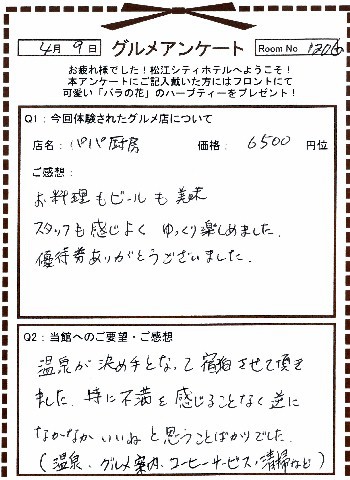 4月 9日 グルメアンケート Room No 1206
お疲れ様でした！松江シティホテルへようこそ！
本アンケートにご記入戴いた方にはフロントにて
可愛い「バラの花」のハーブティーをプレゼント！
Q1：今回体験されたグルメ店について
店名：パパ厨房 価格：6500 円位
ご感想：
お料理もビールも美味
スタッフも感じよく ゆっくり楽しめました。
優待券ありがとうございました。
Q2：当館へのご要望・ご感想
温泉が決め手となって宿泊させて頂き
ました。特に不満を感じることなく逆に
なかなかいいねと思うことばかりでした。
(温泉、グルメ案内、コーヒーサービス、清掃など)